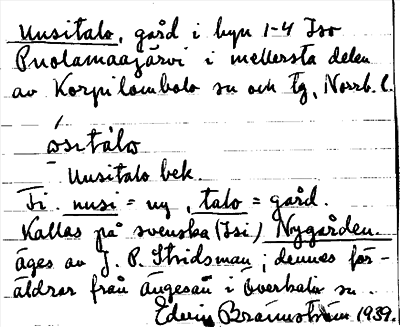 Uusitalo, gård i byn 1-4 Iso
Puolamaajärvi i mellersta delen
av Korpilombolo sn och tg, Norrb. l.
ò̀sıtàlω
Uusitalo bek.
Fi. uusi = ny, talo = gård.
Kallas på svenska (Isi) Nygården.
äges av J. P. Stridsman; dennes för-
äldrar från Ängesån i Överkalix sn.
Edvin Brännström 1939.